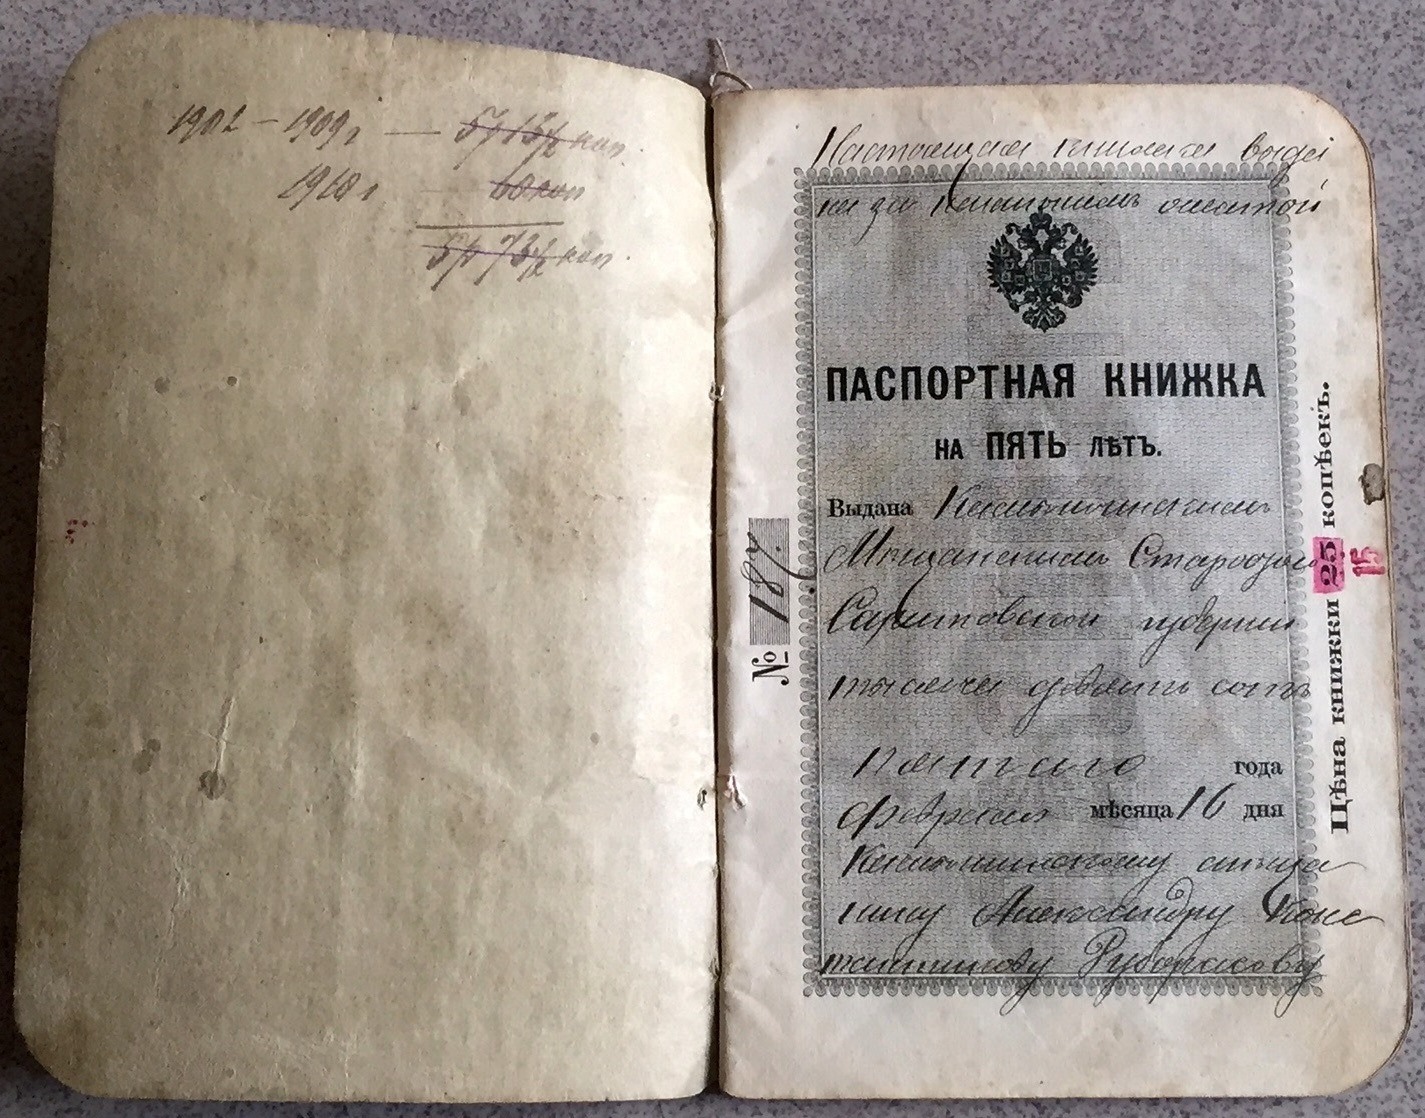 1902 – 1909 г — 5 р 13 ½ коп.
1910 г — 60 коп
5 р 73 ½ коп.
Настоящая книжка выда
на за
ПАСПОРТНАЯ КНИЖКА
НА ПЯТЬ ЛѢТЪ.
Выдана Камышинскимъ
Мѣщанскимъ Старостою
Саратовской губерніи
тысяча девять сотъ
пятаго года
февраля мѣсяца 16 дня
Камышинскому мѣща
нину Александру Конс
тантинову
№ 187.
Цѣна книжки 25 копѣекъ.
15